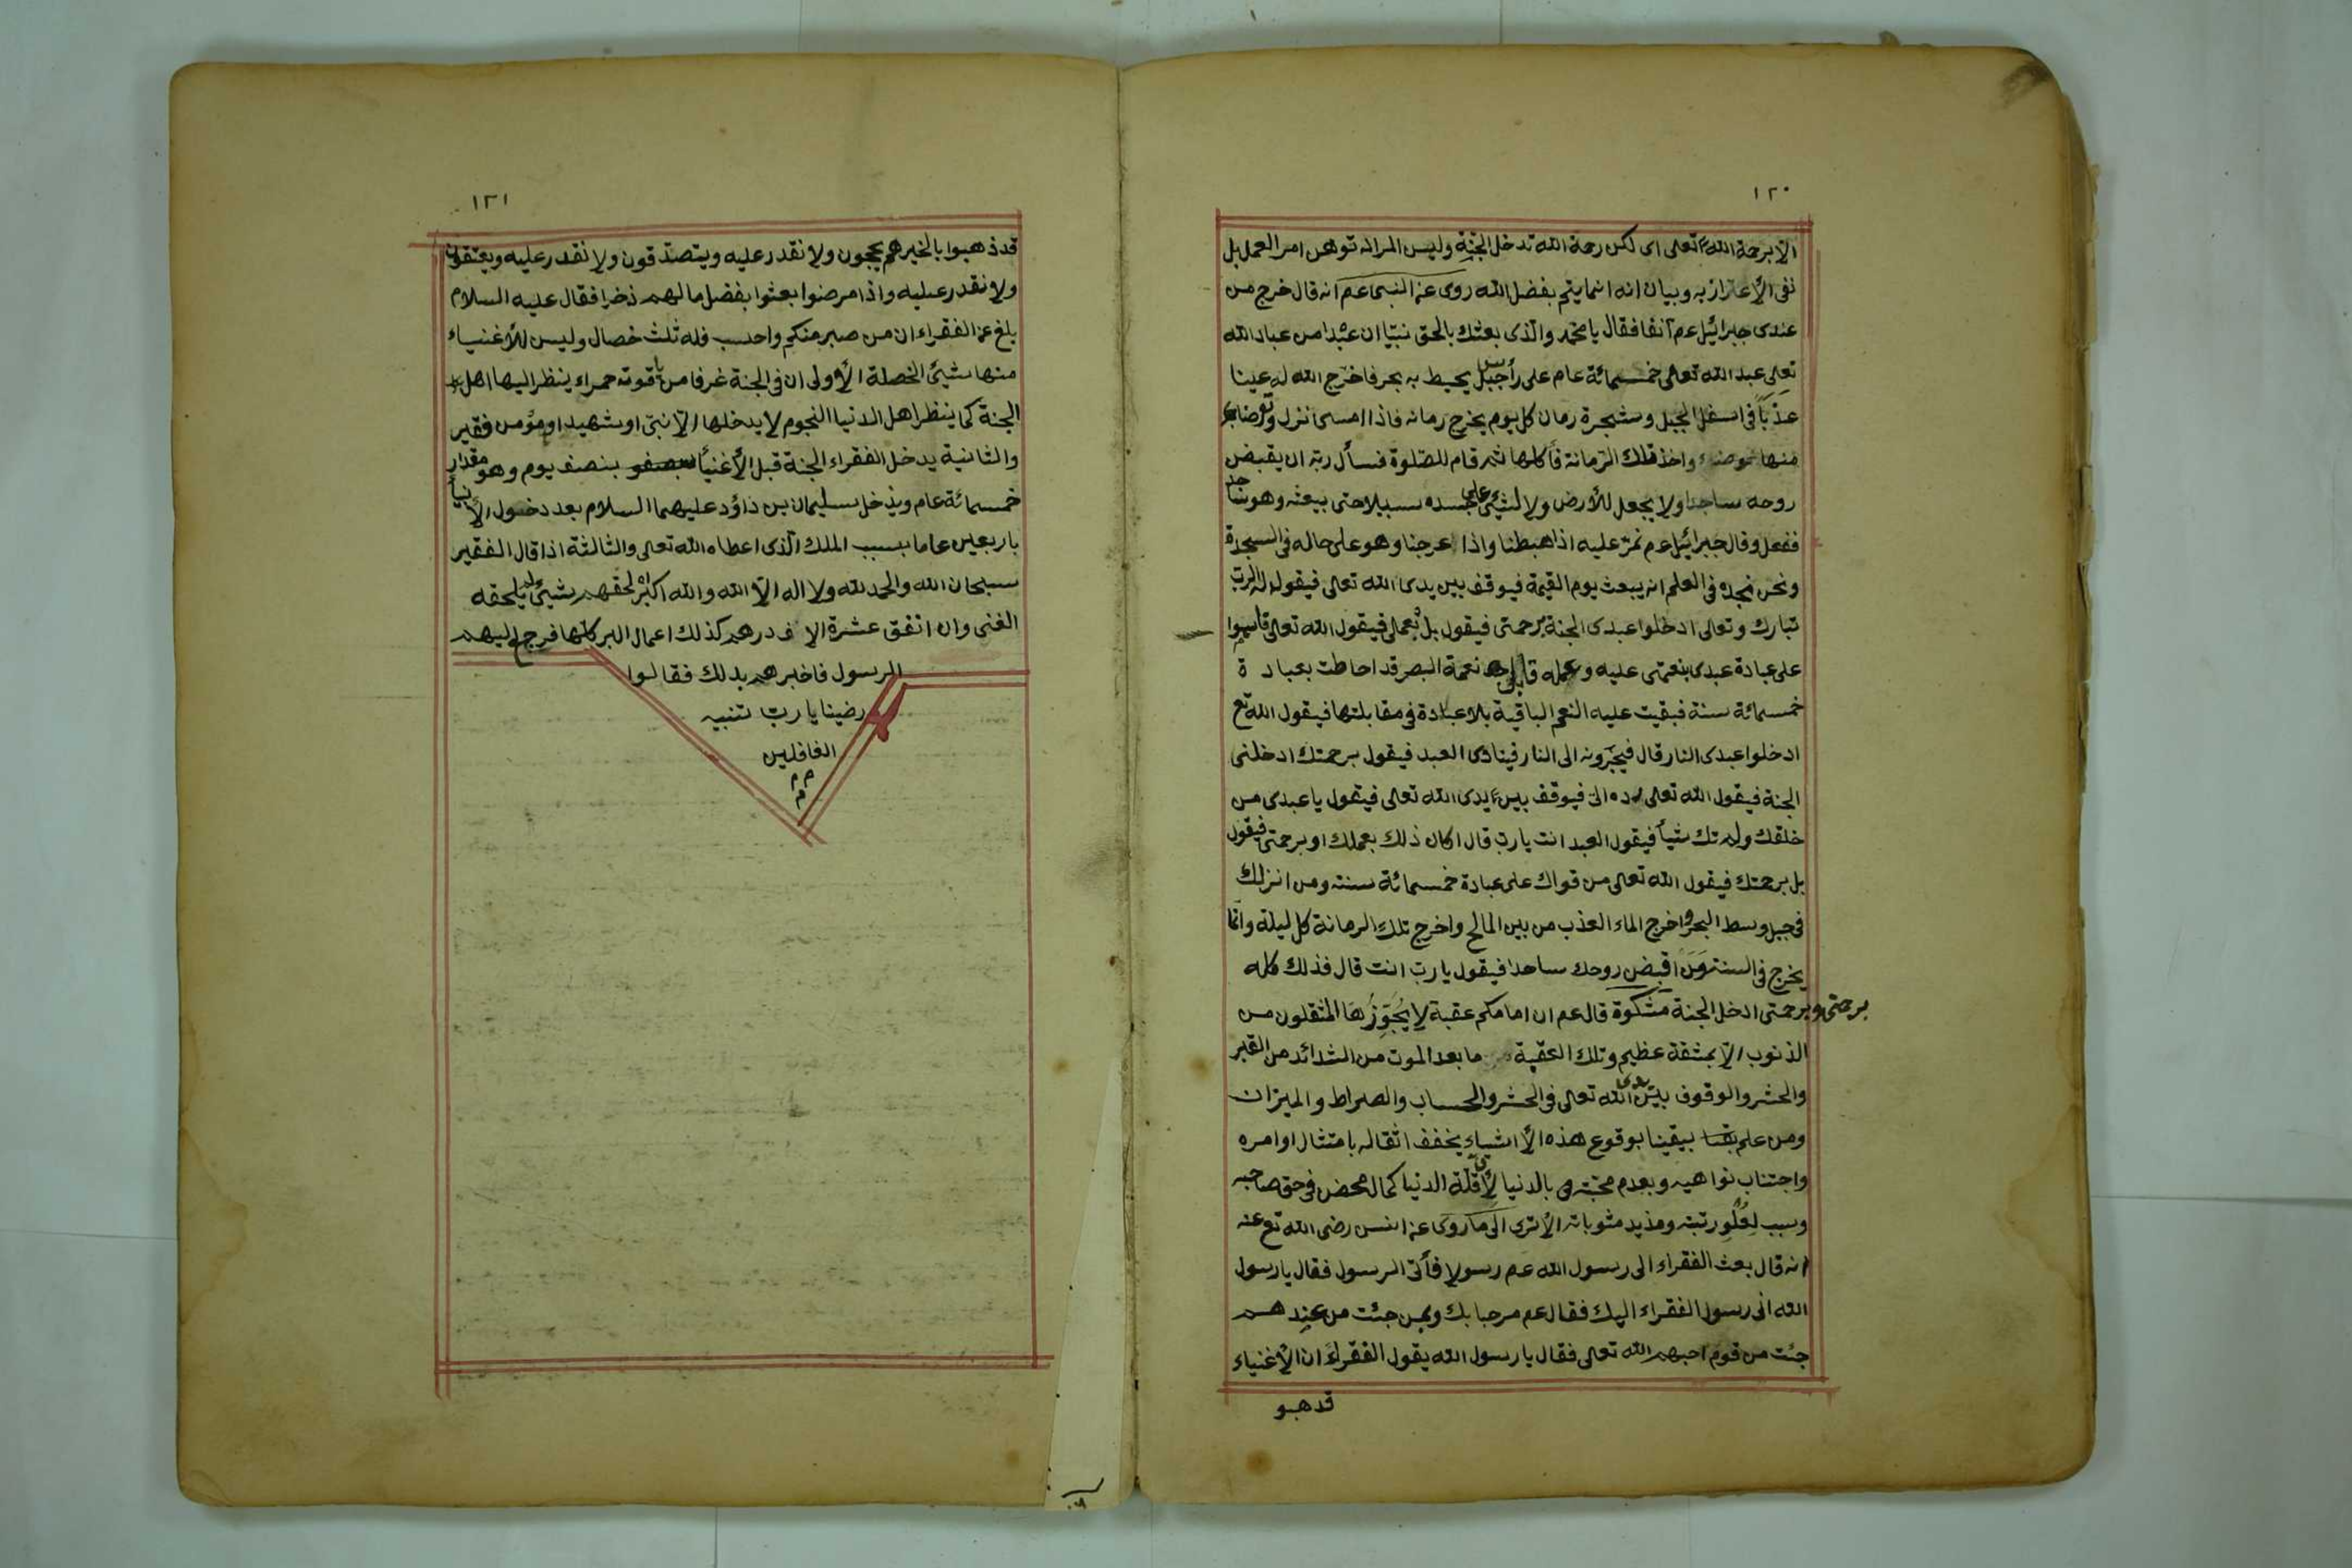 ١٢٠
الا برحمة الله تعالى اى لكن رحمة الله تدخل الجنة وليس المراد توهن امر العمل بل
نفى الأعتزاز به وبيان انه انما يتم بفضل الله روى عن النبى عم انه قال خرج من
عندى جبرائيل عم آنفا فقال يا محمد والذى بعثك بالحق نبيا ان عبدا من عباد الله
تعالى عبد الله تعالى خمسمائة عام على رأس جبل يحيط به بحر فاخرج الله له عينا
عذبا فى اسفل الجبل وشجرة رمان كل يوم يخرج رمانه فاذا امسى نزل وتوضاء
منها واخذ تلك الرمانة فأكلها ثم قام للصلوة فسأل ربه ان يقبض
روحه ساجدا ولا يجعل للأرض ولا لشيئ على جسده سبيلا حتى يبعثه وهو ساجد
ففعل وقال جبرائيل عم نمر عليه اذا هبطنا واذا عرجنا وهو على حاله فى السجدة
ونحن نجده فى العلم انه يبعث يوم القيمة فيوقف بين يدى الله تعالى فيقول له الرب
تبارك وتعالى ادخلوا عبدى الجنة برحمتى فيقول بل بعملى فيقول الله تعالى قاسموا
على عبادة عبدى بنعمتى عليه وعمله نعمة البصر قد احاطت بعبادة
خمسمائة سنة فبقيت عليه النعم الباقية بلا عبادة فى مقابلتها فيقول الله تع
ادخلوا عبدى النار قال فيجرونه الى النار فينادى العبد فيقول برحمتك ادخلنى
الجنة فيقول الله تعالى ردوه الى فيوقف بين يدى الله تعالى فيقول يا عبدى من
خلقك ولم تك شيأ فيقول العبد انت يا رب قال اكان ذلك بعملك او برحمتى فيقول
بل برحمتك فيقول الله تعالى من قواك على عبادة خمسمائة سنته ومن انزلك
فى جبل وسط البحر واخرج الماء العذب من بين المالح واخرج تلك الرمانة كل ليلة وانما
يخرج فى السنة ومن اقبض روحك ساجدا فيقول يا رب انت قال فذلك كله
برحمتى وبرحمتى ادخل الجنة مشكوة قال عم ان امامكم عقبة لا يجوزها المثقلون من
الذنوب الا بمشقة عظيم وتلك العقبة ما بعد الموت من الشدائد من القبر
والحشر والوقوف بين يدى الله تعالى فى الحشر والحساب والصراط والميزان
ومن علم بيقينا بوقوع هذه الأشياء يخفف اثقاله بامتثال اوامره
واجتناب نواهيه وبعدم محبته بالدنيا لأن قلة الدنيا كمال محض فى حق صاحبه
وسبب لعلو رتبته ومذيد مثوباته الا ترى الى ما روى عن انس رضى الله تع عنه
انه قال بعث الفقراء الى رسول الله عم رسولا فأتى الرسول فقال يا رسول
الله انى رسول الفقراء اليك فقال عم مرحبا بك وبمن جئت من عندهم
جئت من قوم احبهم الله تعالى فقال يا رسول الله يقول الفقراء ان الأغنياء
قد هبو
١٢١
قد ذهبوا بالخير هم يحجون ولا نقدر عليه ويتصدقون ولا نقدر عليه ويعتقون
ولا نقدر عليه واذا مرضوا بعثوا بفضل مالهم ذخرا فقال عليه السلام
بلغ عن الفقراء ان من صبر منكم واحسب فله ثلث خصال وليس للأغنياء
منها شيئ الخصلة الأولى ان فى الجنة غرفا من ياقوته حمراء ينظر اليها اهل
الجنة كما ينظر اهل الدنيا النجوم لا يدخلها الا نبى او شهيد او مؤمن فقير
والثانية يدخل الفقراء الجنة قبل الأغنيأ بنصف يوم وهو مقدار
خمسمائة عام ويدخل سليمان بن داؤد عليهما السلام بعد دخول الأنبيأ
باربعين عاما بسبب الملك الذى اعطاه الله تعالى والثالثة اذا قال الفقير
سبحان الله والحمد لله ولا اله الا الله والله اكبر لحقهم شيئ لم يلحقه
الغنى وان انفق عشرة الاف درهم كذلك اعمال البر كلها فرجع اليهم
الرسول فاخبرهم بدلك فقالوا
رضينا يا رب تنبيه
الغافلين
م م
م